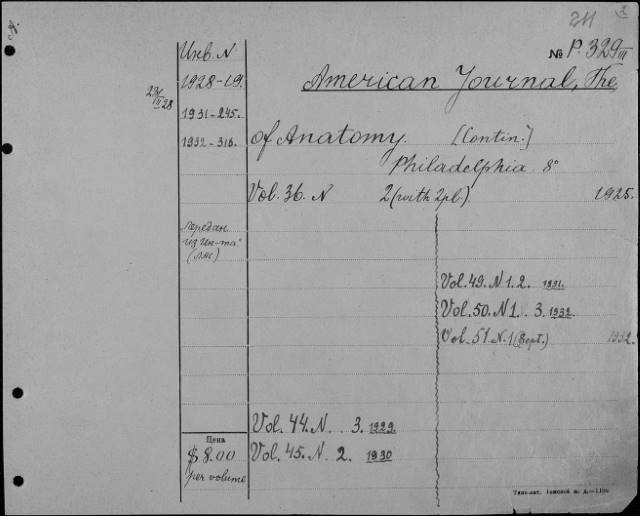 211
№ P. 329 III
Инв. N
1928-19.
1931-245.
1932-316.
American Journal, The
of Anatomy. [Contin.]
Philadelphia 8°
Vol. 36. N 2 (with 2 pl.) 1925.
Передан
из Ин-та
Vol. 49. N 1. 2. 1931.
Vol. 50. N 1. 3. 1932.
Vol. 51 N. 1 (Sept.) 1932.
Vol. 44. N. 3. 1929.
Vol. 45. N. 2. 1930
Цена
$ 8.00
per volume